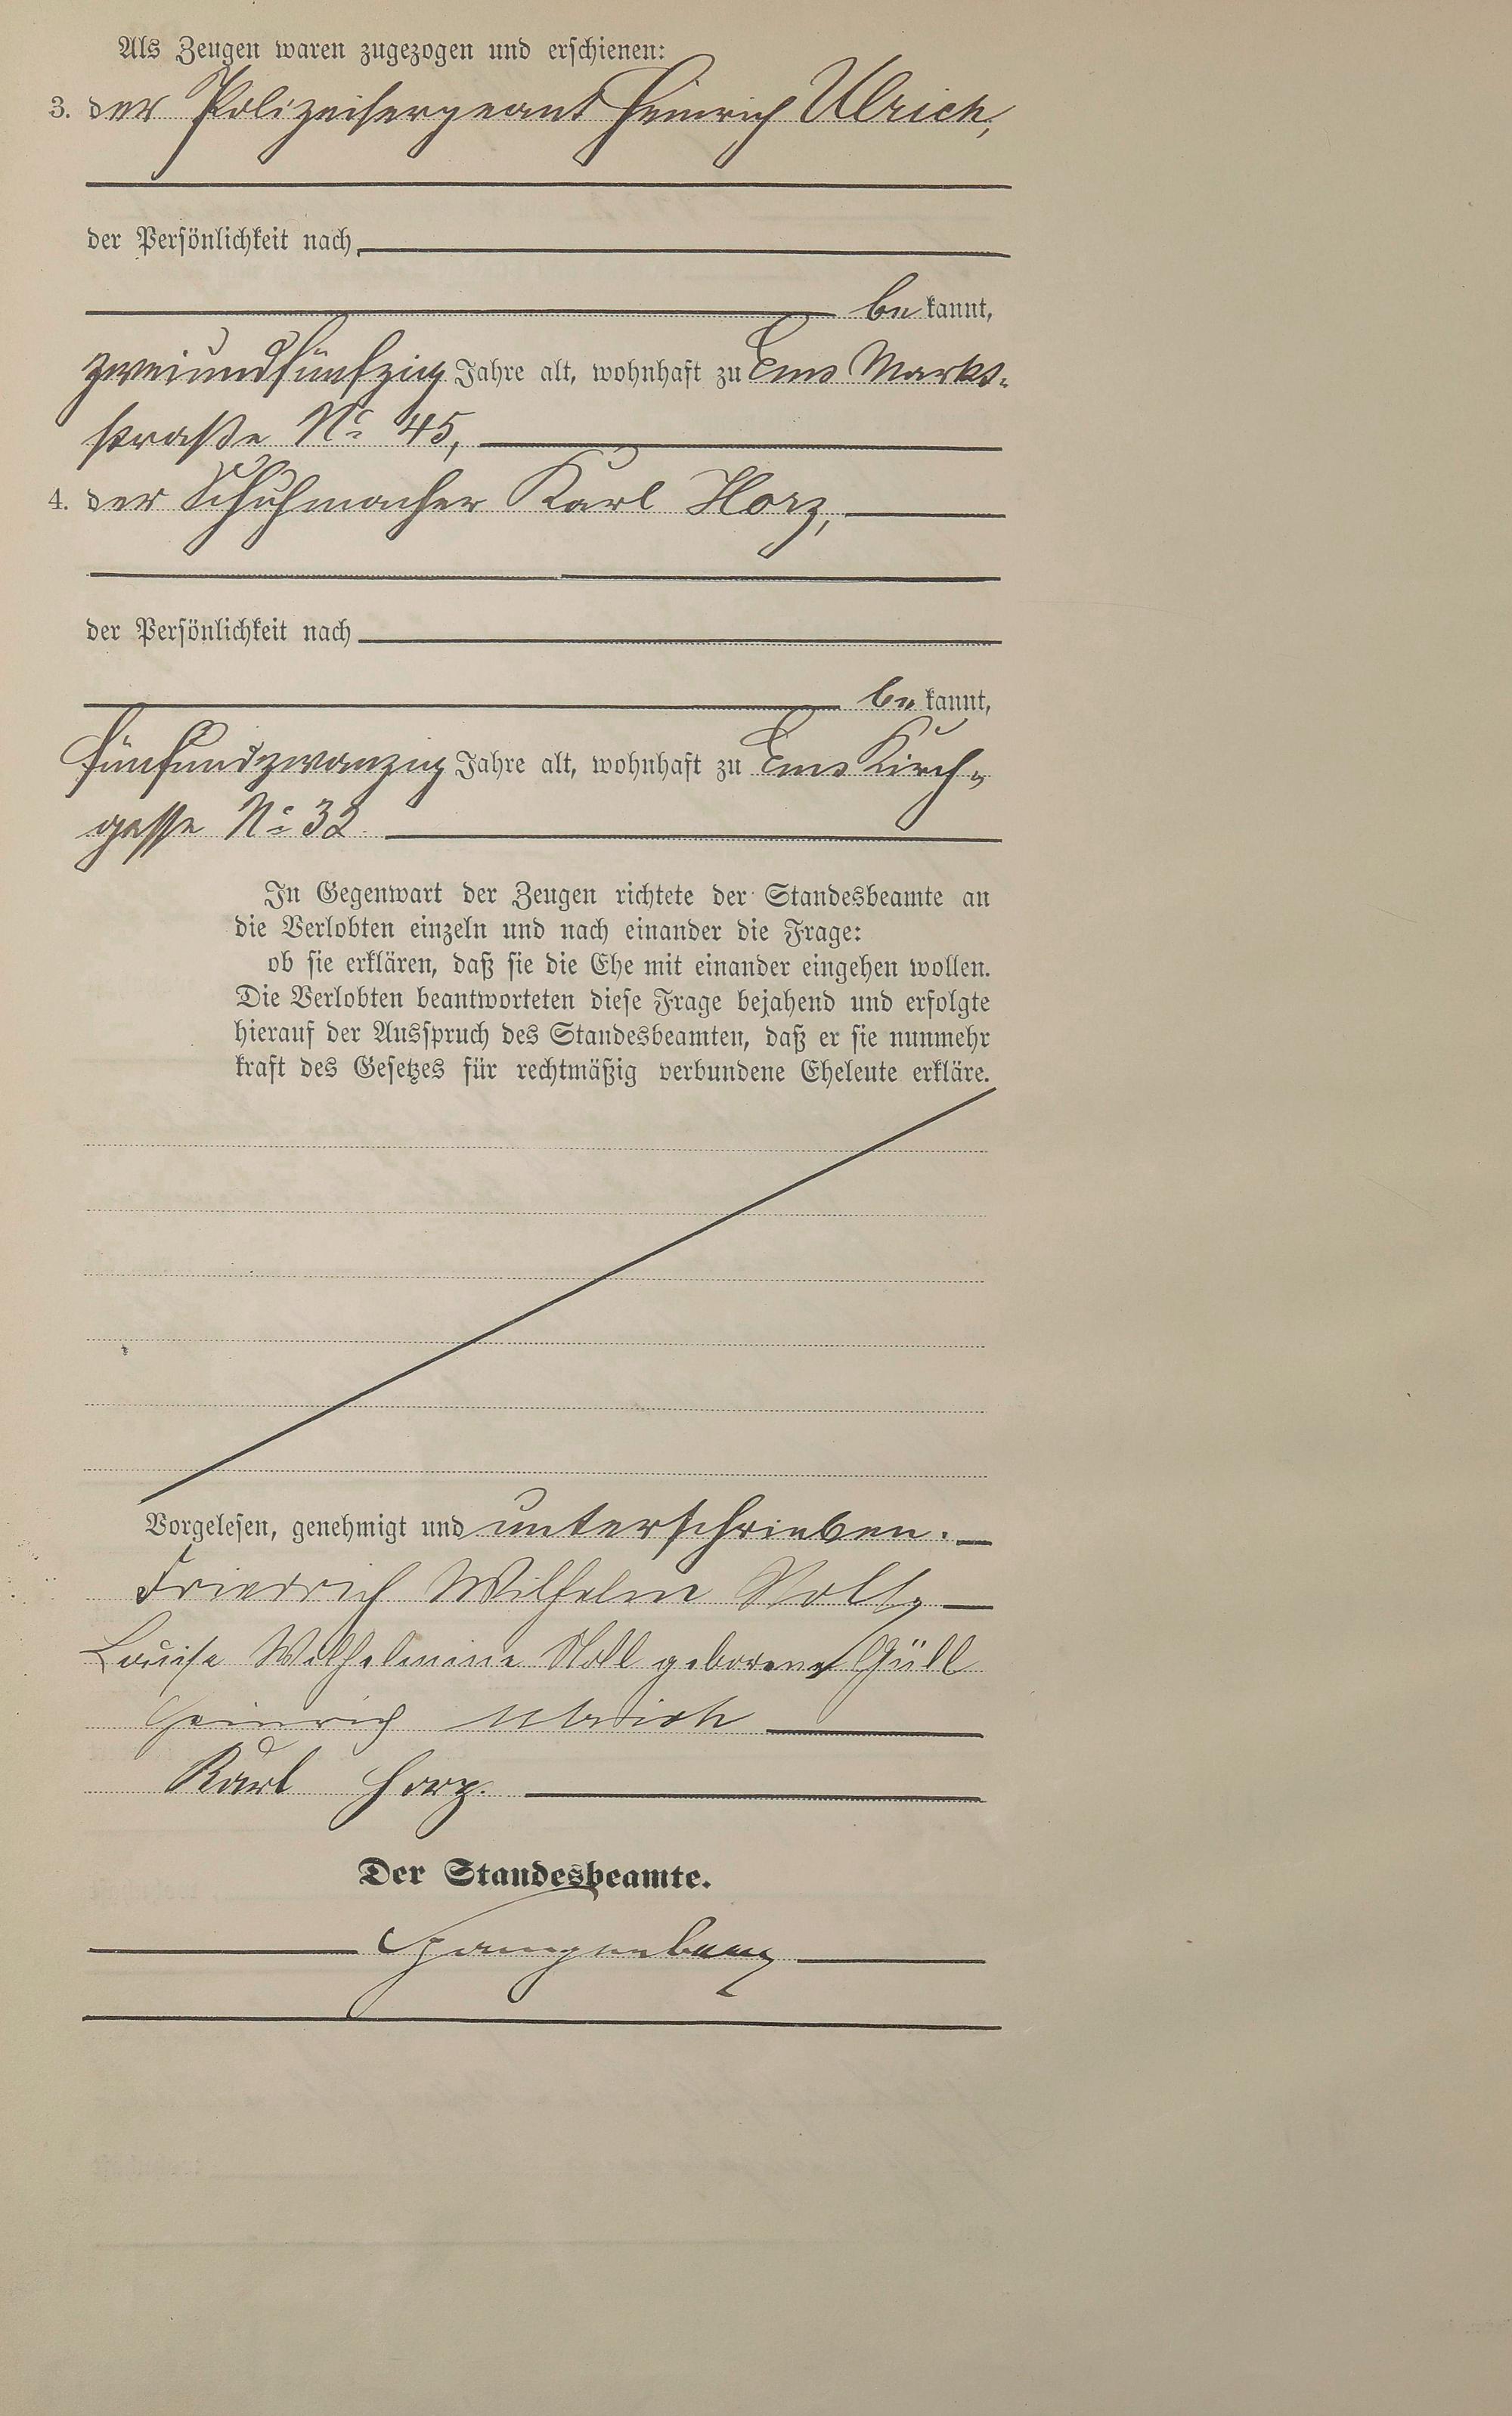 Als Zeugen waren zugezogen und erschienen:
3. der Polizeisergeant Heinrich Ulrich,
der Persönlichkeit nach
bekannt,
zweiundfünfzig Jahre alt, wohnhaft zu Ems Markt-
straße No 45,
4. der Schuhmacher Karl Horz,
der Persönlichkeit nach
bekannt,
fünfundzwanzig Jahre alt, wohnhaft zu Ems Kirch-
gasse No 32
In Gegenwart der Zeugen richtete der Standesbeamte an
die Verlobten einzeln und nach einander die Frage:
ob sie erklären, daß sie die Ehe mit einander eingehen wollen.
Die Verlobten beantworteten diese Frage bejahend und erfolgte
hierauf der Ausspruch des Standesbeamten, daß er sie nunmehr
kraft des Gesetzes für rechtmäßig verbundene Eheleute erkläre.
Vorgelesen, genehmigt und unterschrieben.
Friedrich Wilhelm
Louise Wilhelmine Noll geborene Güll
Heinrich Ulrich
Karl Horz.
Der Standesbeamte.
Spangenberg